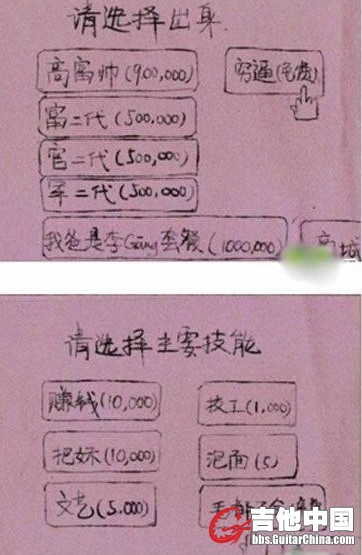 请选择出身
高富帅(900,000)
穷逼(免费)
富二代(500,000)
官二代(500,000)
军二代(500,000)
我爸是李Gang套餐(1000,000)
高城
请选择主要技能
赚钱(10,000)
技工(1,000)
把妹(10,000)
泡面(5)
文艺(5.000)
吉他中国
bbs.GuitarChina.com